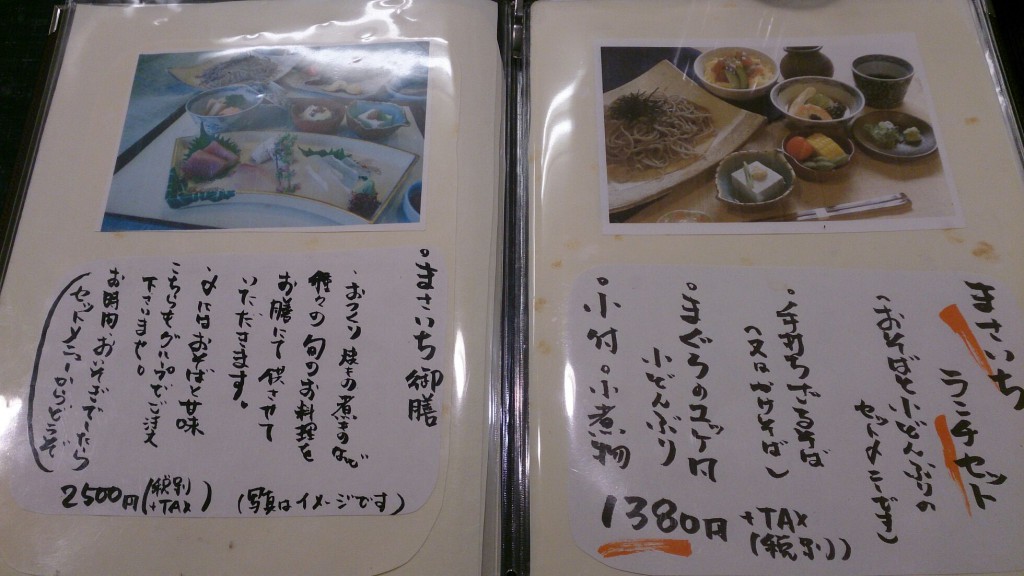 。まさいち御膳
・おつくり 炊きもの 煮ものなど
種々の旬のお料理を
お膳にて供させて
いただきます。
〆にはおそばと甘味
こちらもグループでご注文
下さいませ。
お時間 お急ぎでしたら
(セットメニューからどうぞ)
2500円(税別 +TAX)
(写真はイメージです)
まさいち
ランチセット
(おそばと小どんぶりの
セットメニューです)
・手打ちざるそば
(又はかけそば)
・まぐろのユッケ丼
小どんぶり
・小付・小煮物
1380円 +TAX
(税別)